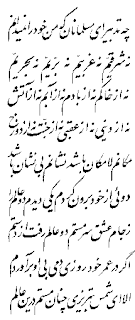 چه تدبیر ای مسلمانان که من خود را نمیدانم
نه شرقیم نه غربیم نه بریم نه بحریم
نه از خاکم نه از بادم نه از آبم نه از آتش
نه از دنیی نه از عقبی نه از جنت نه از دوزخ
مکانم لامکان باشد نشانم بی نشان باشد
دوئی از خود برون کردم یکی دیدم دو عالم را
ز جام عشق سرمستم دو عالم رفت از دستم
اگر در عمر خود روزی دمی بی او برآوردم
الا ای شمس تبریزی چنان مستم درین عالم